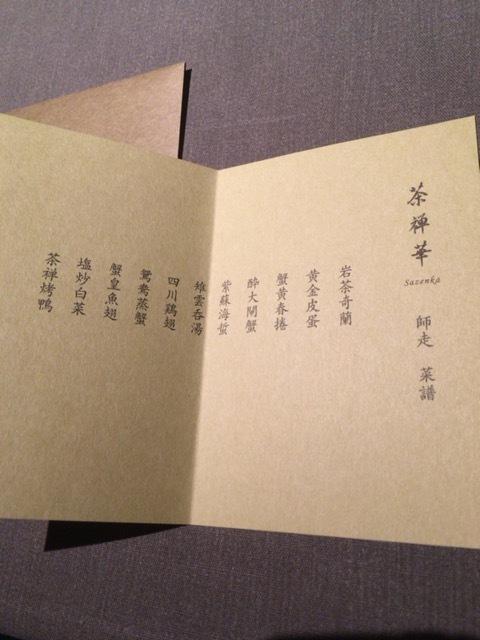 茶禅華
Sazenka
師走 菜譜
岩茶奇蘭
黄金皮蛋
蟹黄春捲
酔大閘蟹
紫蘇海蜇
雉雲呑湯
四川鶏翅
鴛鴦蒸蟹
蟹皇魚翅
塩炒白菜
茶禅烤鴨